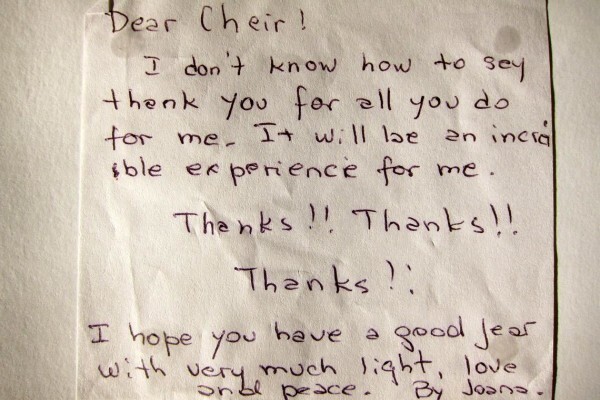 Dear Cheir!
I don't know how to sey
thank you for all you do
for me. It will be an incre
ible experience for me.
Thanks!! Thanks!!
Thanks!!
I hope you have a good Jear
with very much light, love
and peace. By Joana.